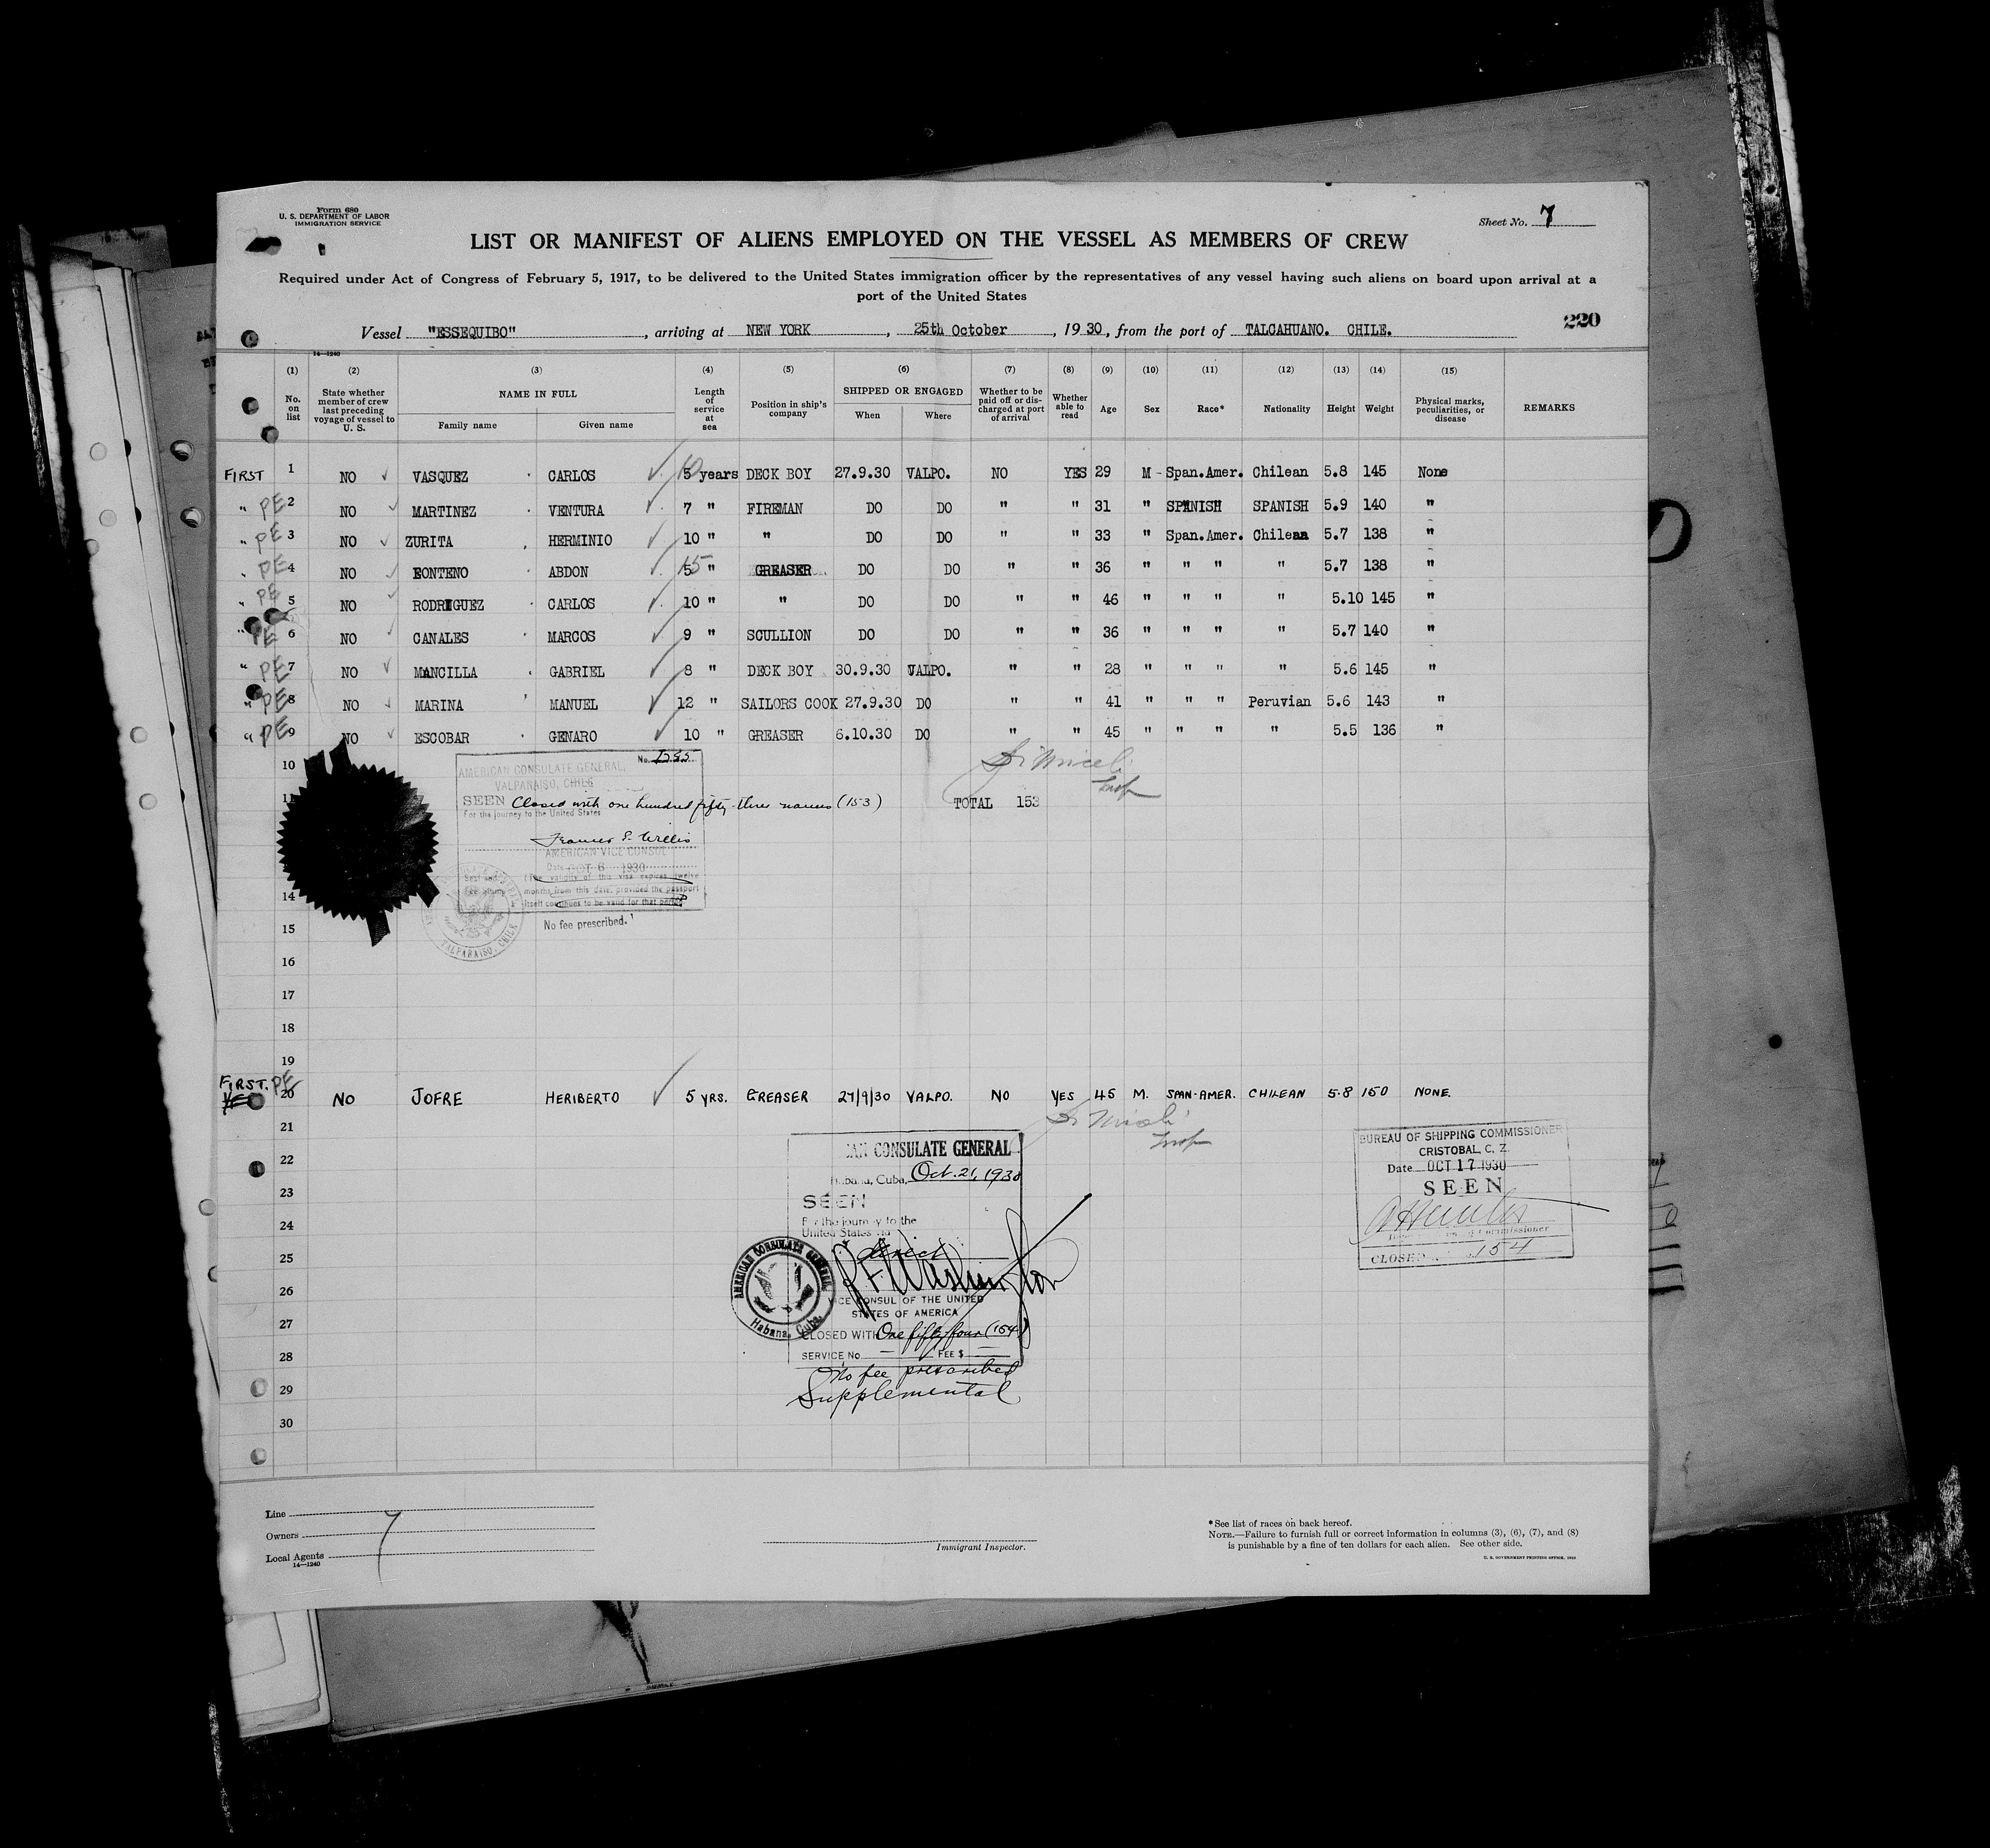 Form 680
U. S. DEPARTMENT OF LABOR
IMMIGRATION SERVICE
Sheet No. 7
LIST OR MANIFEST OF ALIENS EMPLOYED ON THE VESSEL AS MEMBERS OF CREW
Required under Act of Congress of February 5, 1917, to be delivered to the United States immigration officer by the representatives of any vessel having such aliens on board upon arrival at a
port of the United States
220
Vessel "ESSEQUIBO", arriving at NEW YORK, 25th October, 1930, from the port of TALCAHUANO. CHILE.
14—1240
(1) (2) (3) (4) (5) (6) (7) (8) (9) (10) (11) (12) (13) (14) (15)
No. on list
State whether member of crew last preceding voyage of vessel to U. S.
NAME IN FULL
Family name
Given name
Length of service at sea
Position in ship's company
SHIPPED OR ENGAGED
When
Where
Whether to be paid off or discharged at port of arrival
Whether able to read
Age
Sex
Race*
Nationality
Height
Weight
Physical marks, peculiarities, or disease
REMARKS
FIRST 1 NO VASQUEZ CARLOS 10 years DECK BOY 27.9.30 VALPO. NO YES 29 M - Span.Amer. Chilean 5.8 145 None
" PE 2 NO MARTINEZ VENTURA 7 " FIREMAN DO DO " " 31 " SPANISH SPANISH 5.9 140 "
" PE 3 NO ZURITA HERMINIO 10 " " DO DO " " 33 " Span.Amer. Chilean 5.7 138 "
" PE 4 NO FONTENO ABDON 15 " GREASER DO DO " " 36 " " " " 5.7 138 "
" PE 5 NO RODRIGUEZ CARLOS 10 " " DO DO " " 46 " " " " 5.10 145 "
" PE 6 NO CANALES MARCOS 9 " SCULLION DO DO " " 36 " " " " 5.7 140 "
" PE 7 NO MANCILLA GABRIEL 8 " DECK BOY 30.9.30 VALPO. " " 28 " " " " 5.6 145 "
" PE 8 NO MARINA MANUEL 12 " SAILORS COOK 27.9.30 DO " " 41 " " " Peruvian 5.6 143 "
" PE 9 NO ESCOBAR GENARO 10 " GREASER 6.10.30 DO " " 45 " " " " 5.5 136 "
10
No.
AMERICAN CONSULATE GENERAL,
VALPARAISO, CHILE
11
SEEN Closed with one hundred fifty-three names (153)
TOTAL 153
Insp
For the journey to the United States
Frances E. Willis
AMERICAN VICE CONSUL
Date OCT 6 1930
Seal and
Fee stamp
(The validity of this visa expires twelve
months from this date, provided the passport
itself continues to be valid for that period)
14
No fee prescribed.
VALPARAISO, CHILE
15
16
17
18
19
FIRST. PE
20 NO JOFRE HERIBERTO 5 YRS. GREASER 27/9/30 VALPO. NO YES 45 M. SPAN-AMER. CHILEAN 5.8 150 NONE.
Insp
21
22
23
24
25
26
27
28
29
30
AN CONSULATE GENERAL
Habana, Cuba, Oct. 21, 1930
SEEN
For the journey to the
United States via
direct
VICE CONSUL OF THE UNITED
STATES OF AMERICA
CLOSED WITH One fifty four (154)
SERVICE No — FEE $ —
No fee prescribed
Supplemental
AMERICAN CONSULATE GENERAL
Habana, Cuba.
BUREAU OF SHIPPING COMMISSIONER
CRISTOBAL, C. Z.
Date OCT 17 1930
SEEN
Commissioner
CLOSED 154
Line
Owners
Local Agents
14—1240
7
Immigrant Inspector.
*See list of races on back hereof.
NOTE.—Failure to furnish full or correct information in columns (3), (6), (7), and (8)
is punishable by a fine of ten dollars for each alien. See other side.
U. S. GOVERNMENT PRINTING OFFICE